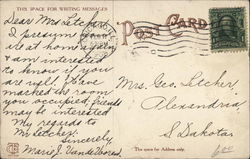 THIS SPACE FOR WRITING MESSAGES
POST CARD
Dear Mrs Letcher,
I presume you
are at home again
& am interested
to know if you
are well. Have
market the room
you occupied, friends
may be interested
My regards to
Mr Letcher.
Sincerely,
Marie J. Vande
Mrs. Geo. Letcher,
Alexandria,
S. Dakota
This space for Address only.